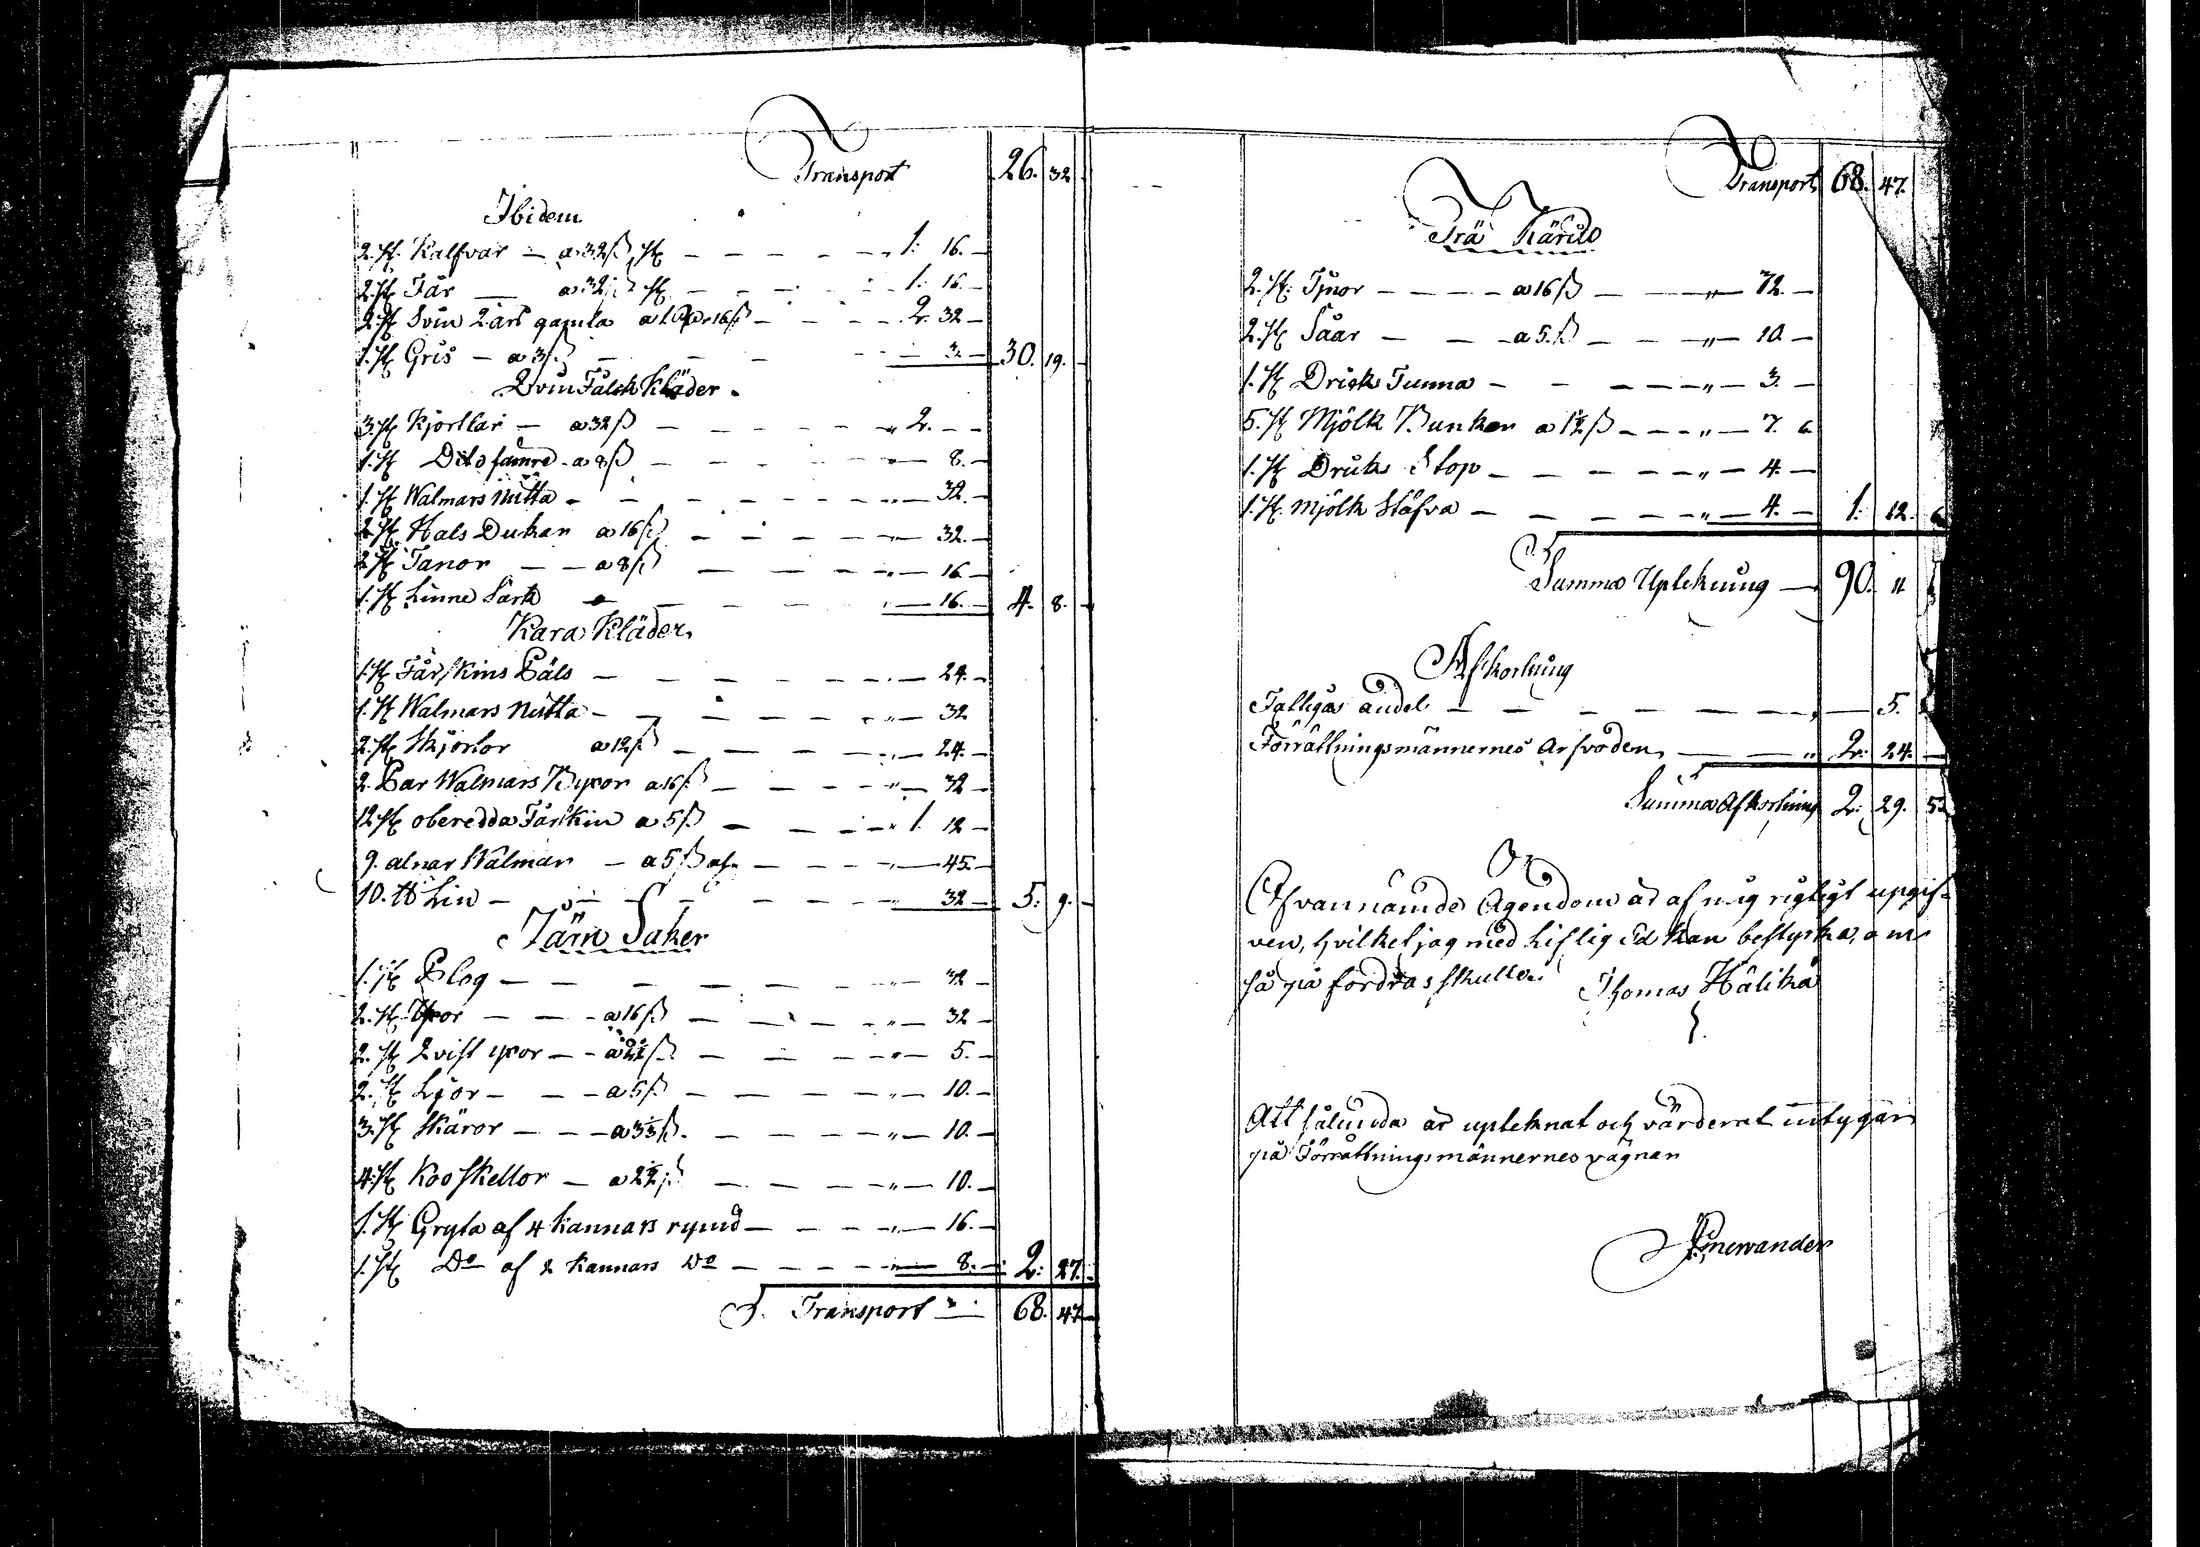 Transport 26. 32
Ibidem
2. st. Kalfvar — a 32 ß st — 1: 16. —
2. st Får — a 32 ß st — 1: 16. —
2. st Svin 2. års gamla a 1 Rdr 16 ß — 2. 32 —
1. st Gris — a 3 ß — 3. — 30. 19. —
Qvin Falck Kläder
3. st Kjortlar — a 32 ß — „ 2. — —
1. st Dito sämre a 8 ß — „ — 8. —
1. st Walmars Mitta — „ — 32. —
2. st Hals Dukar a 16 ß — „ — 32. —
2. st Tanor — a 8 ß — „ — 16 —
1. st Linne Särk — „ — 16. — 4. 8. —
Kara Kläder
1. st Fårskins Päls — „ — 24. —
1. st Walmars Mitta — „ — 32
2. st Skjortor a 12 ß — „ — 24. —
2. Par Walmars Byxor a 16 ß — „ — 32 —
12 st oberedda Fårskin a 5 ß — „ 1. 12 —
9. alnar Walmar — a 5 ß aln — „ — 45. —
10. ℔ Lin — „ 32 — 5: 9. —
Järn Saker
1. st Plog — „ — 32 —
2. st Yxor — a 16 ß — „ — 32 —
2. st Qvist yxor — a 2½ ß — „ — 5. —
2. st Ljor — a 5 ß — „ — 10. —
3. st Skäror — a 3⅓ ß — „ — 10. —
4. st Koo skellor — a 2½ ß — „ — 10. —
1. st Gryta af 4 kannars rymd — „ — 16. —
1. st Do af 2 kannars Do — „ — 8. — 2: 27. —
Transport 68. 47 —
Transport 68. 47.
Trä Kärild
2. st. — a 16 ß — „ — 72. —
2. st Såar — a 5. ß — „ — 10 —
1. st Dricks Tunna — „ — 3. —
5. st Mjölk Bunkar a 1½ ß — „ — 7. 6
1. st Drick Stop — „ — 4. —
1. st. Mjölk Stäfva — „ — 4. — 1: 12. 6
Summa Uptekning — 90. 11
Afkortning
Fattigas andel — „ — 5.
Förrättningsmännernes Arfvoden — „ 2: 24. —
Summa Afkortning 2: 29. 5
Ofvannämde Ägendom är af mig rigtigt upgif=
ven, hvilket jag med Liflig Ed kan bestyrka, om
så på fordras skulle Thomas Hälikä
Att sålunda är upteknat och värderat intygar
på Förrättningsmännernes vägnar